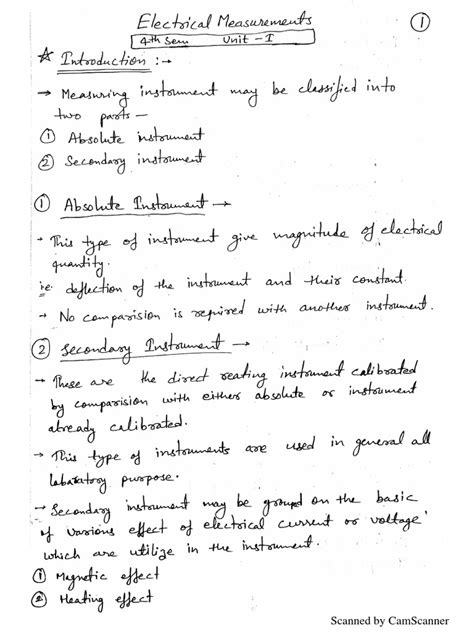 Electrical Measurements
①
4th Sem Unit - I
☆ Introduction :→
→ Measuring instrument may be classified into
two parts —
① Absolute instrument
② Secondary instrument
① Absolute Instrument →
→ This type of instrument give magnitude of electrical
quantity.
i.e. deflection of the instrument and their constant.
→ No comparision is required with another instrument.
② Secondary Instrument →
→ These are the direct reading instrument calibrated
by comparision with either absolute or instrument
already calibrated.
→ This type of instruments are used in general all
labaratory purpose.
→ Secondary instrument may be group on the basic
of various effect of electrical current or voltage
which are utilize in the instrument.
① Magnetic effect
② Heating effect
Scanned by CamScanner